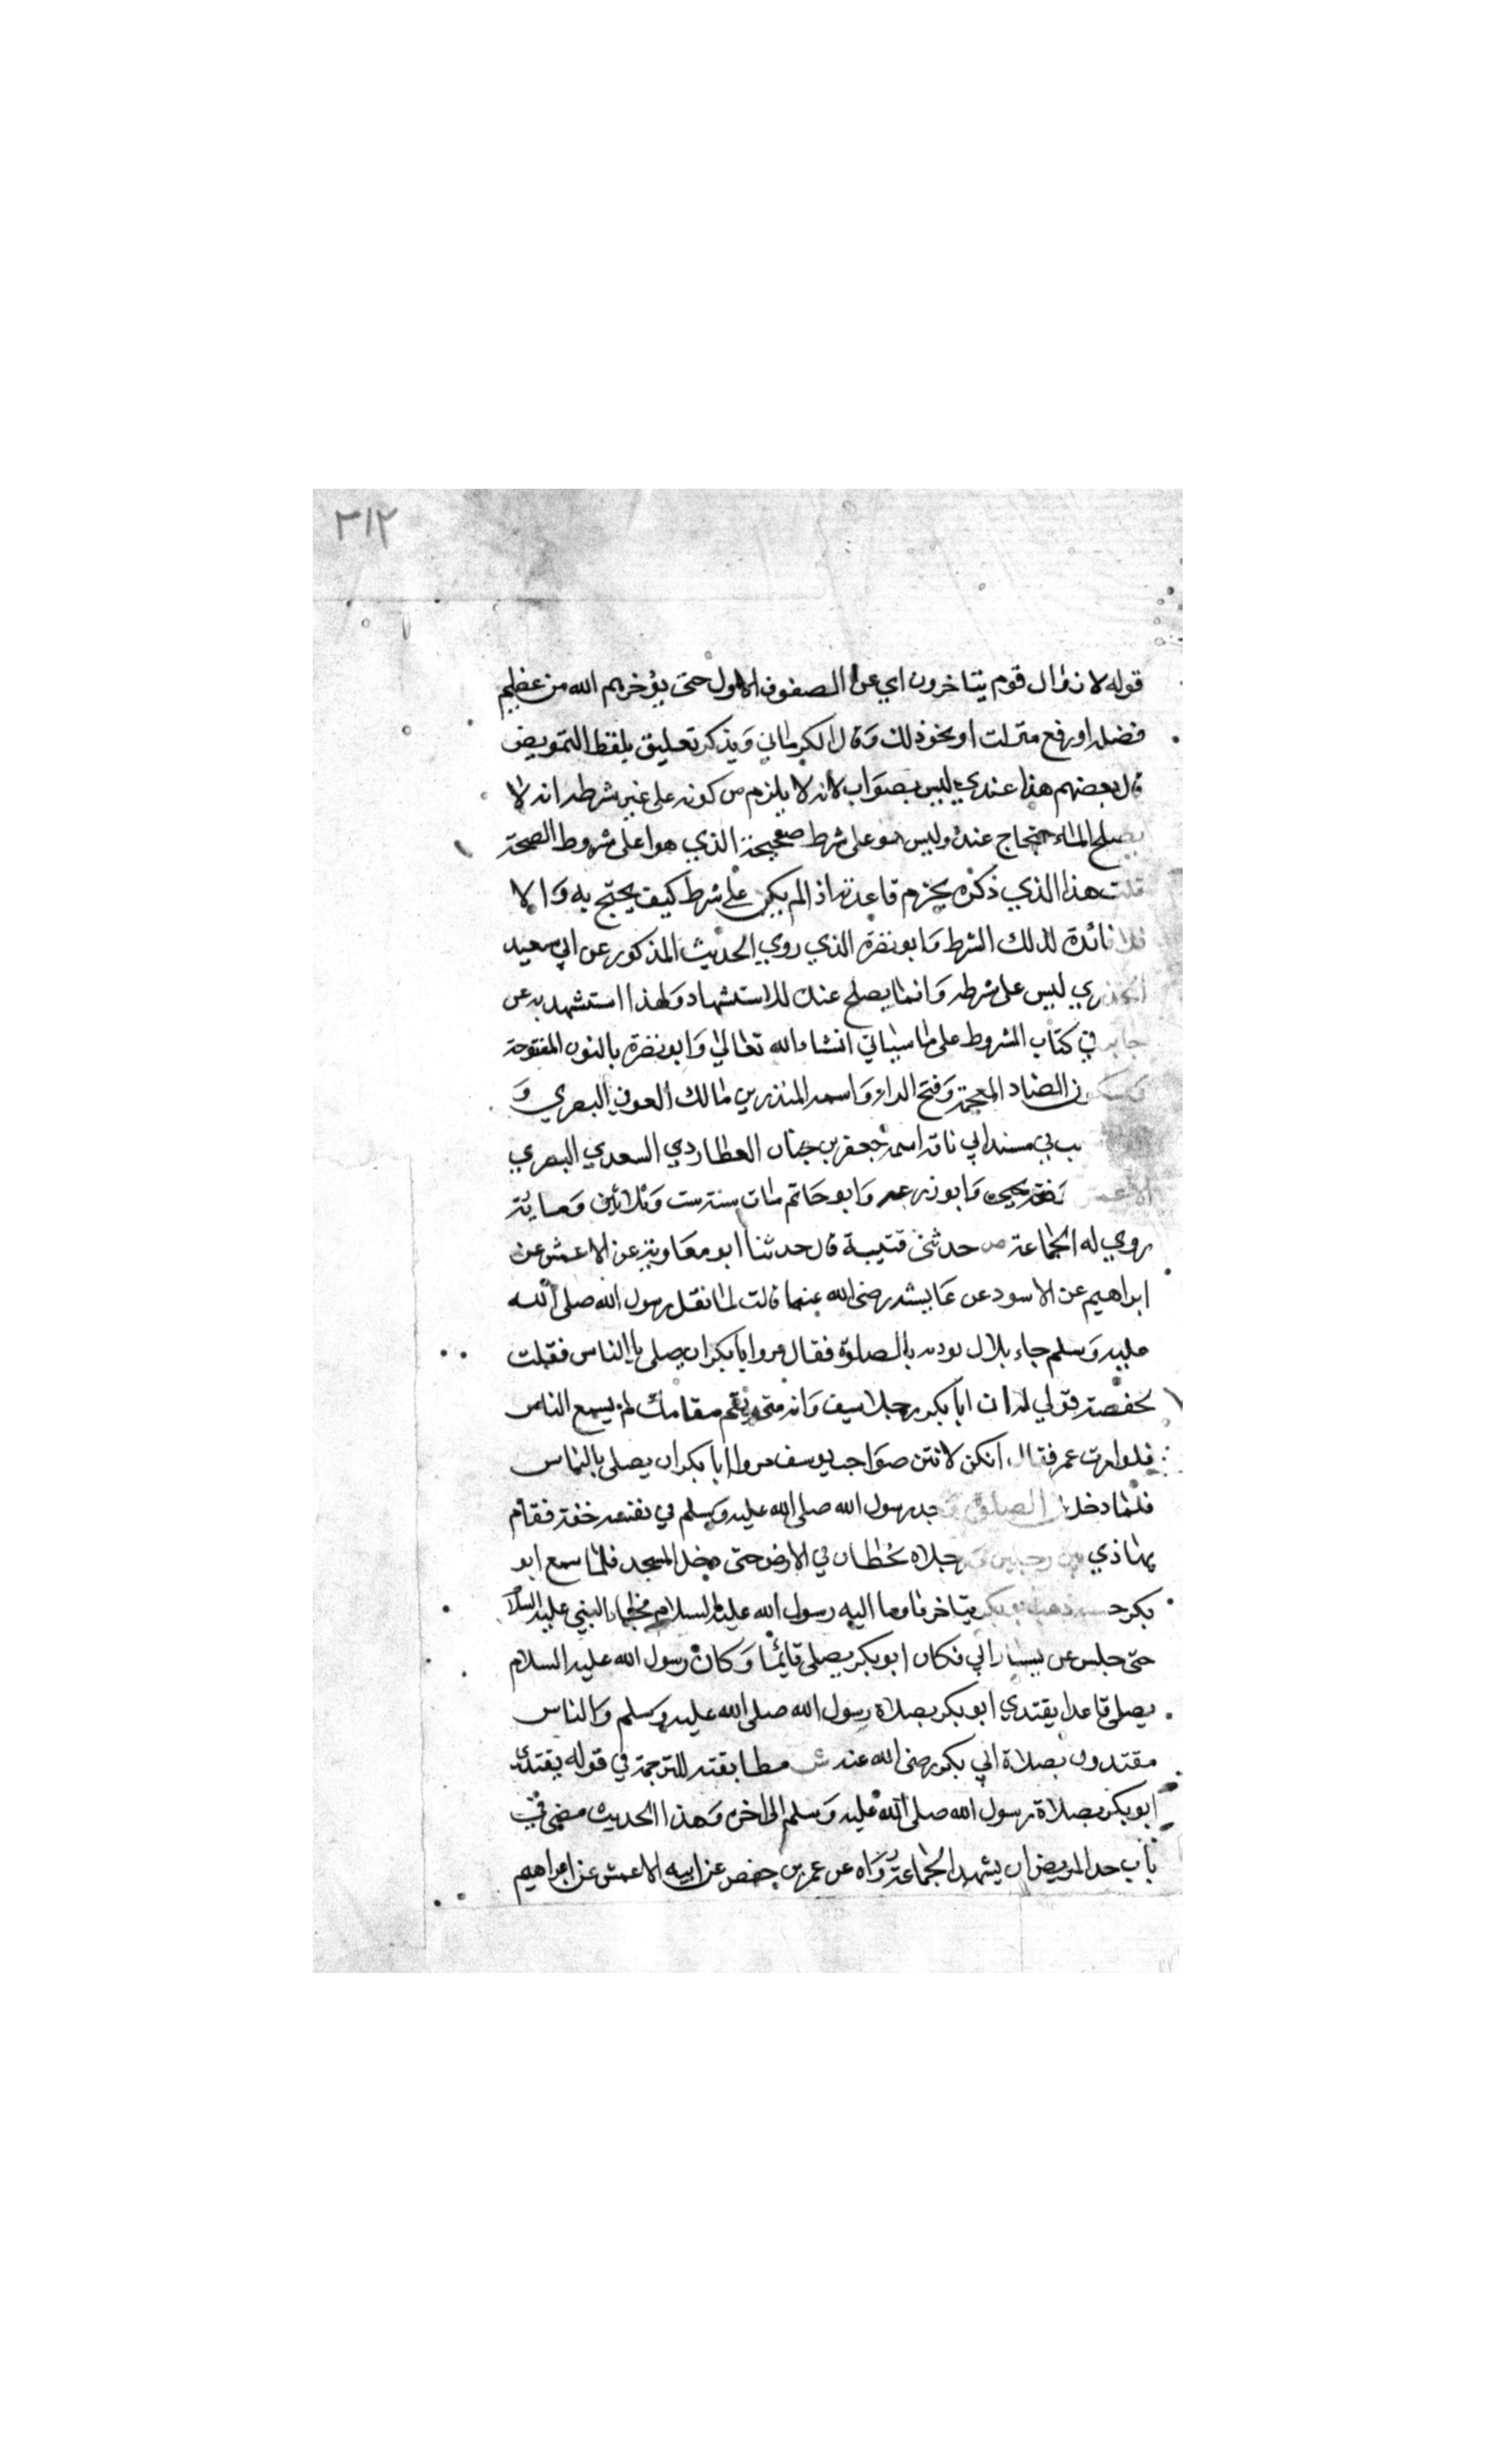 ٣١٢
قوله لا نزال قوم يتاخرون اي عن الصفوف الاول حتى يؤخرهم الله من عظيم
فضله او رفع منزلته او نحو ذلك وقال الكرماني ويذكر تعليق بلفظ التمريض
قال بعضهم هذا عندي ليس بصواب لانه لا يلزم من كونه على غير شرطه انه لا
يصلح للاحتجاج عنده وليس هو على شرط صحيحه الذي هو اعلى شروط الصحة
قلت هذا الذي ذكره يخرم قاعدته اذا لم يكن على شرط كيف يحتج به والا
فلا فائدة لذلك الشرط وابو نضرة الذي روي الحديث المذكور عن ابي سعيد
الخدري ليس على شرطه وانما يصلح عنده للاستشهاد ولهذا استشهد به عن
جابر في كتاب الشروط على ما سياتي انشاء الله تعالى وابو نضرة بالنون المفتوحة
وسكون الضاد المعجمة وفتح الراء واسمه المنذر بن مالك العوفي البصري و
اسمه جعفر بن حيان العطاردي السعدي البصري
الاعمش يحيى وابو زرعه وابو حاتم مات سنة ست وثلاثين ومايئة
روي له الجماعة ص حدثني قتيبة قال حدثنا ابو معاوية عن الاعمش عن
ابراهيم عن الاسود عن عايشه رضى الله عنها قالت لما ثقل رسول الله صلى الله
عليه وسلم جاء بلال يوذنه بالصلوة فقال مروا ابا بكر ان يصلى بالناس فقلت
لحفصة قولي له ان ابا بكر رجل اسيف وانه متى يقم مقامك لم يسمع الناس
فلو امرت عمر فقال انكن لانتن صواحب يوسف مروا ابا بكر ان يصلى بالناس
فلما دخل في الصلوة وجد رسول الله صلى الله عليه وسلم في نفسه خفة فقام
يهاذي بين رجلين ورجلاه يخطان في الارض حتى دخل المسجد فلما سمع ابو
بكر حسه ذهب ابو بكر يتاخر فاوما اليه رسول الله عليه السلام فجاء النبي عليه السلام
حتى جلس عن يسار ابي فكان ابو بكر يصلى قايما وكان رسول الله عليه السلام
يصلي قاعدا يقتدي ابو بكر بصلاة رسول الله صلى الله عليه وسلم والناس
مقتدون بصلاة ابي بكر رضى الله عنه ش مطابقته للترجمة في قوله يقتدي
ابو بكر بصلاة رسول الله صلى الله عليه وسلم الى اخره وهذا الحديث مضى في
باب حد المريض ان يشهد الجماعة رواه عن عمر بن حفص عن ابيه الاعمش عن ابراهيم